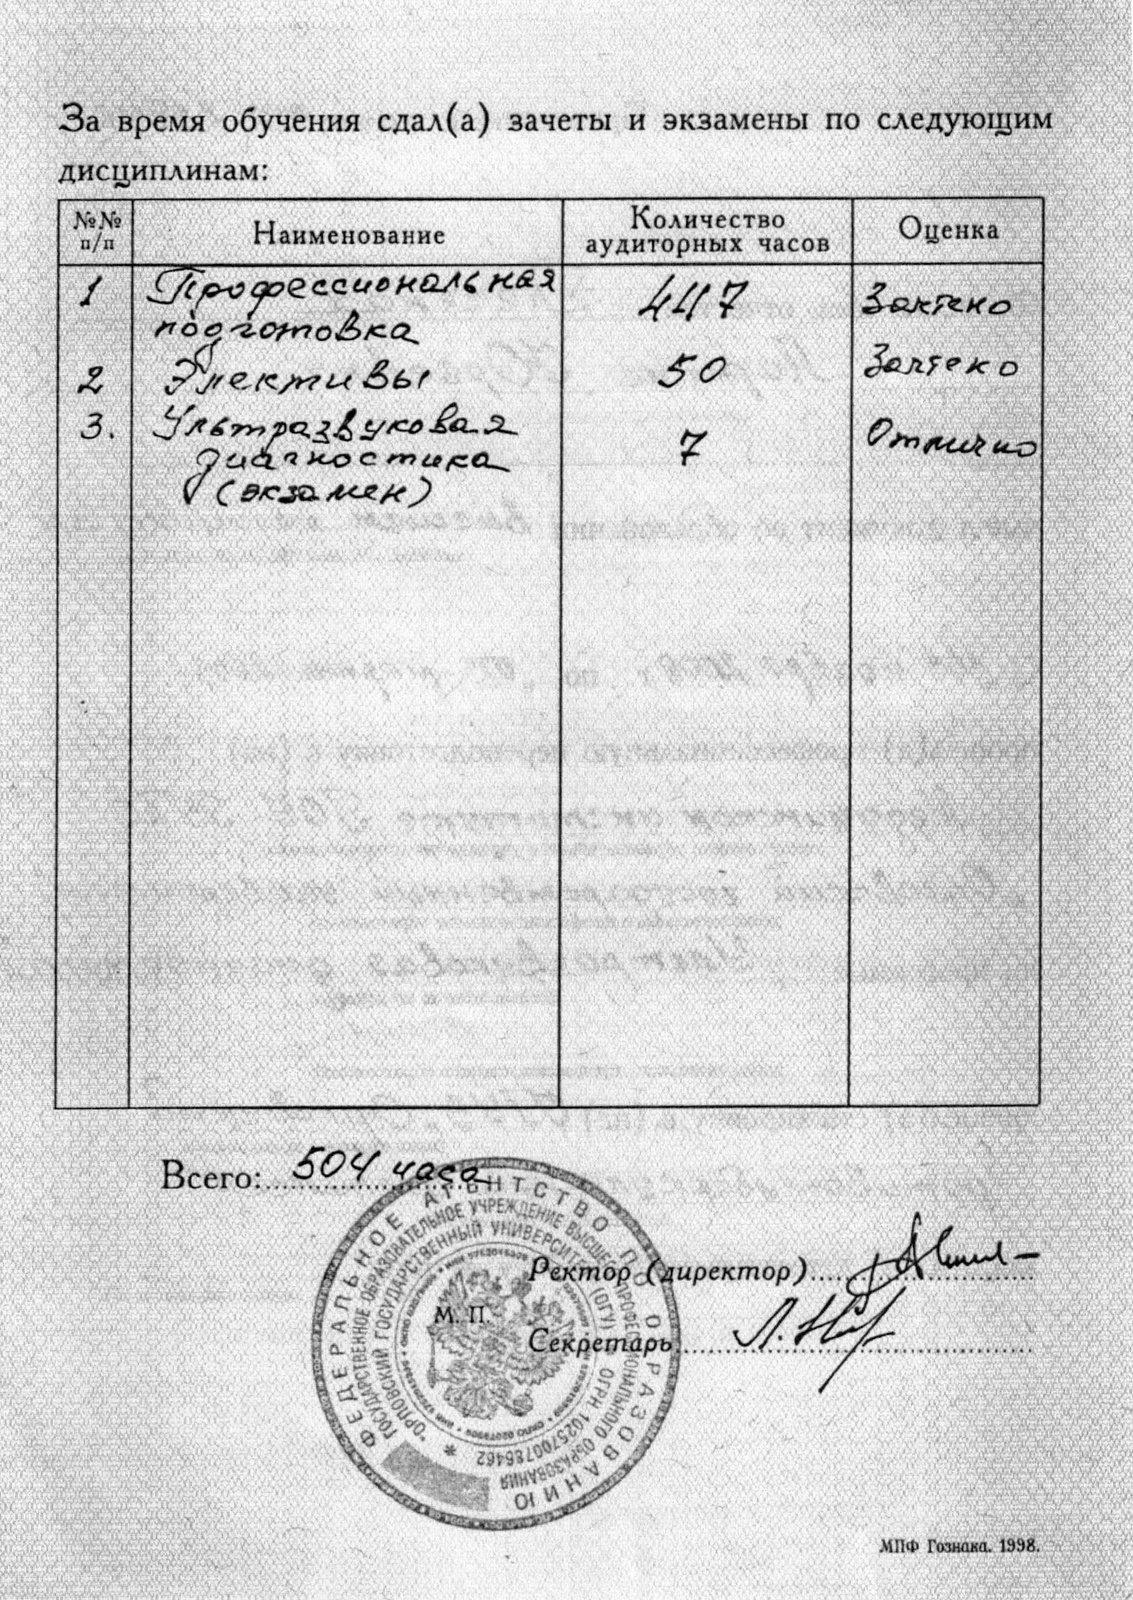 За время обучения сдал(а) зачеты и экзамены по следующим
дисциплинам:
№№ п/п
Наименование
Количество аудиторных часов
Оценка
1 Профессиональная 447 Зачтено
подготовка
2 Элективы 50 Зачтено
3. Ультразвуковая 7 Отлично
диагностика
(экзамен)
Всего: 504 часа
ФЕДЕРАЛЬНОЕ АГЕНТСТВО ПО ОБРАЗОВАНИЮ
ГОСУДАРСТВЕННОЕ ОБРАЗОВАТЕЛЬНОЕ УЧРЕЖДЕНИЕ ВЫСШЕГО ПРОФЕССИОНАЛЬНОГО ОБРАЗОВАНИЯ
"ОРЛОВСКИЙ ГОСУДАРСТВЕННЫЙ УНИВЕРСИТЕТ" (ОГУ) * ОГРН 1025700786462 *
Ректор (директор)
М. П.
Секретарь
МПФ Гознака. 1998.